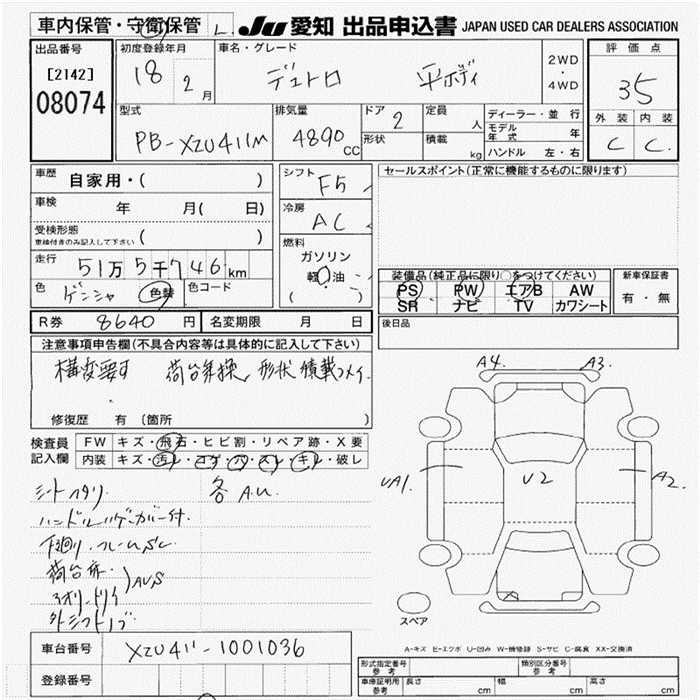 車内保管・守衛保管 L. JU 愛知 出品申込書 JAPAN USED CAR DEALERS ASSOCIATION
出品番号 初度登録年月 車名・グレード 評価点
[2142] 18 2月 デュトロ 平ボディ 2WD・4WD 35
08074
型式 排気量 ドア 2 定員 人 ディーラー・並行 外装 内装
PB-XZU411M 4890 CC 形状 積載 kg モデル年式 年 C C.
ハンドル 左・右
車歴 自家用・( ) シフト F5 セールスポイント(正常に機能するものに限ります)
車検 年 月( 日) 冷房 AC
受検形態 車検付きのみ記入して下さい ( ) 燃料
ガソリン
走行 51万5千746km 軽油
( )
装備品(純正品に限り○をつけてください) 新車保証書
色 ゲンシャ 色替 色コード PS PW エアB AW 有・無
SR ナビ TV カワシート
R券 8640円 名変期限 月 日 後日品
注意事項申告欄(不具合内容等は具体的に記入して下さい)
構変要す 形状 積載
修復歴 有 〔箇所 〕
検査員 FW キズ・飛石・ヒビ割・リペア跡・X要
記入欄 内装 キズ・汚レ・コゲ・穴・スレ・キレ・破レ
A4 A3
UA1 U2 A2
シートヘタリ 各A.U
下廻り.フレームSC
荷台床
アオリ.トリイ AUS
外シフトノブ
スペア
A-キズ E-エクボ U-凹み W-補修跡 S-サビ C-腐食 XX-交換済
車台番号 XZU411-1001036
登録番号
形式指定番号 参考 類別区分番号 参考
車庫証明用 参考 長さ cm 幅 cm 高さ cm